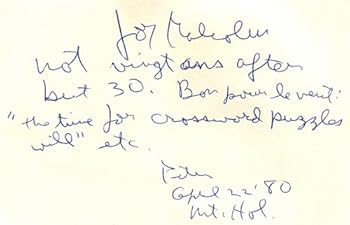 for Malcolm
not vingt ans after
but 30. Bon pour le vent:
"the time for crossword puzzles
will" etc.
Peter
April 22 '80
Mt. Hol.